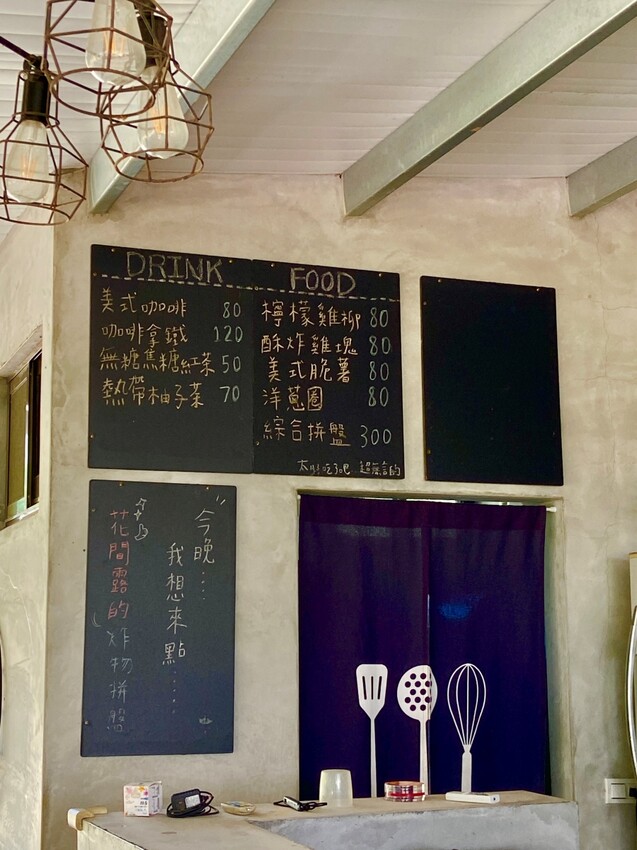 DRINK
美式咖啡 80
咖啡拿鐵 120
無糖焦糖紅茶 50
熱帶柚子茶 70
FOOD
檸檬雞柳 80
酥炸雞塊 80
美式脆薯 80
洋蔥圈 80
綜合拼盤 300
今晚....
我想來點......
花間露的炸物拼盤